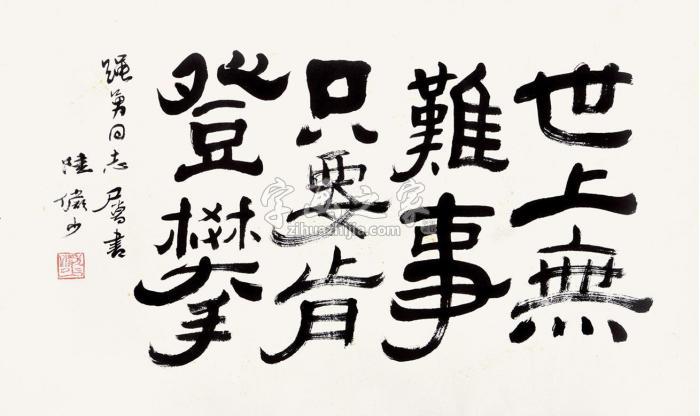 世上無
難事
只要肯
登攀
勇同志属書
陸儼少
字画之家
zihuazhijia.com